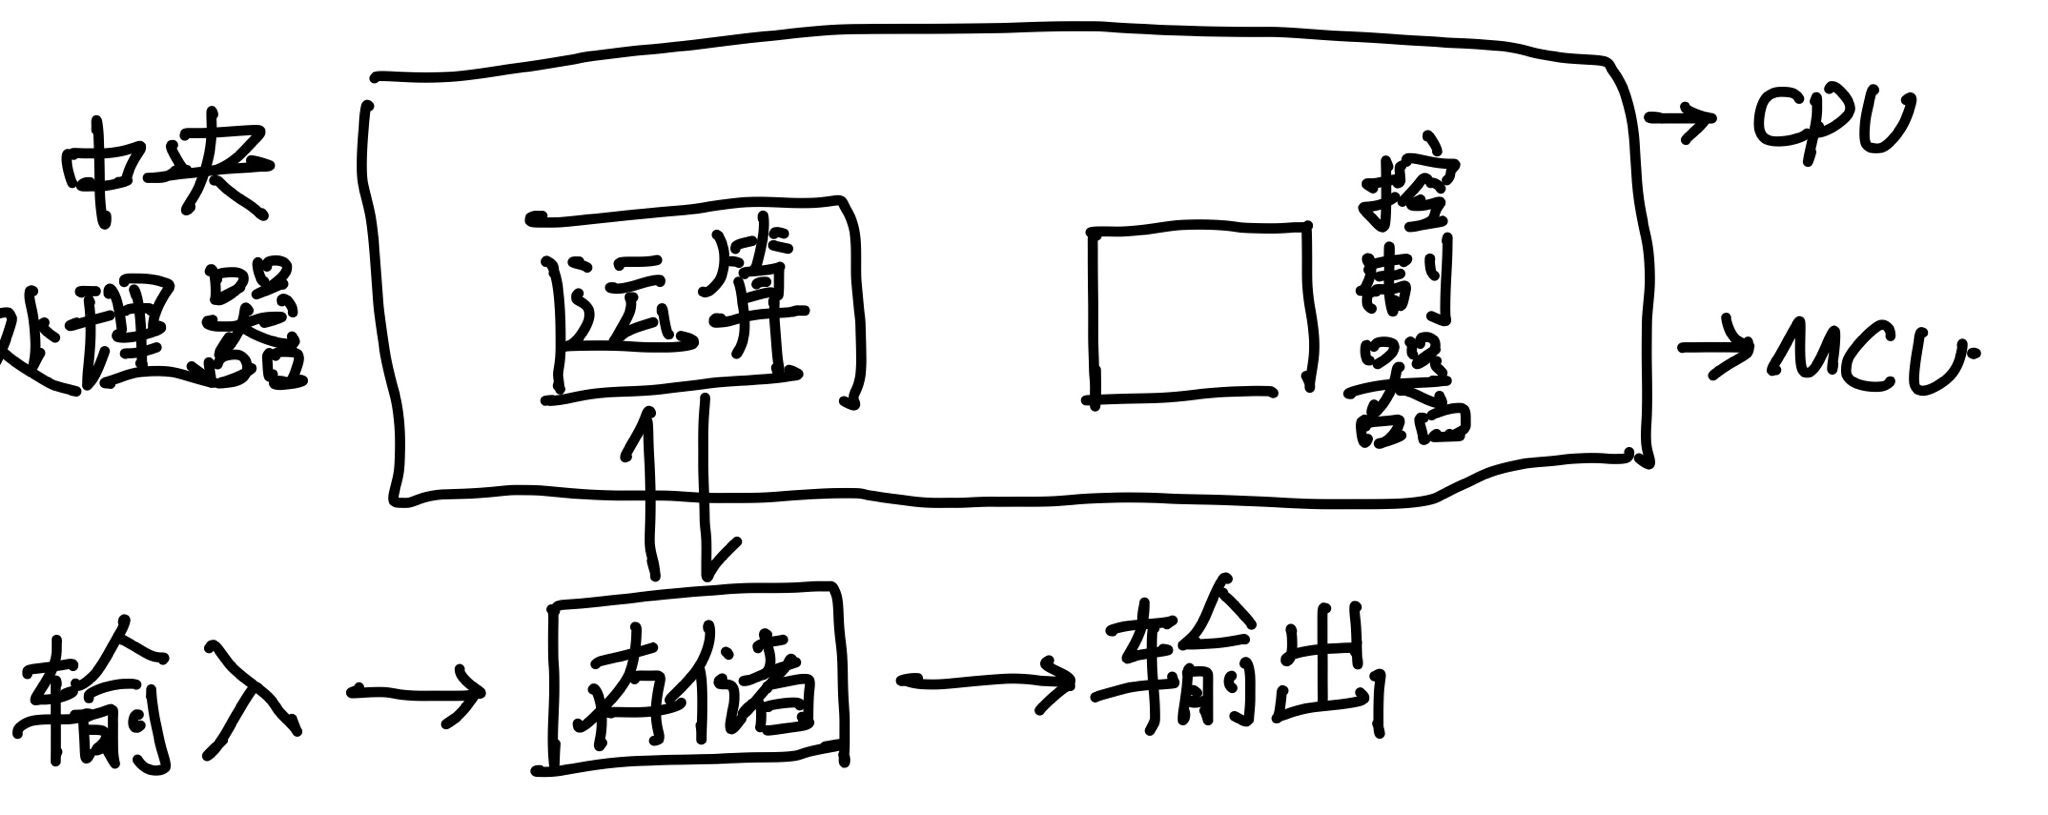 中央
处理器
运算
控
制
器
CPU
MCU
输入
存储
输出